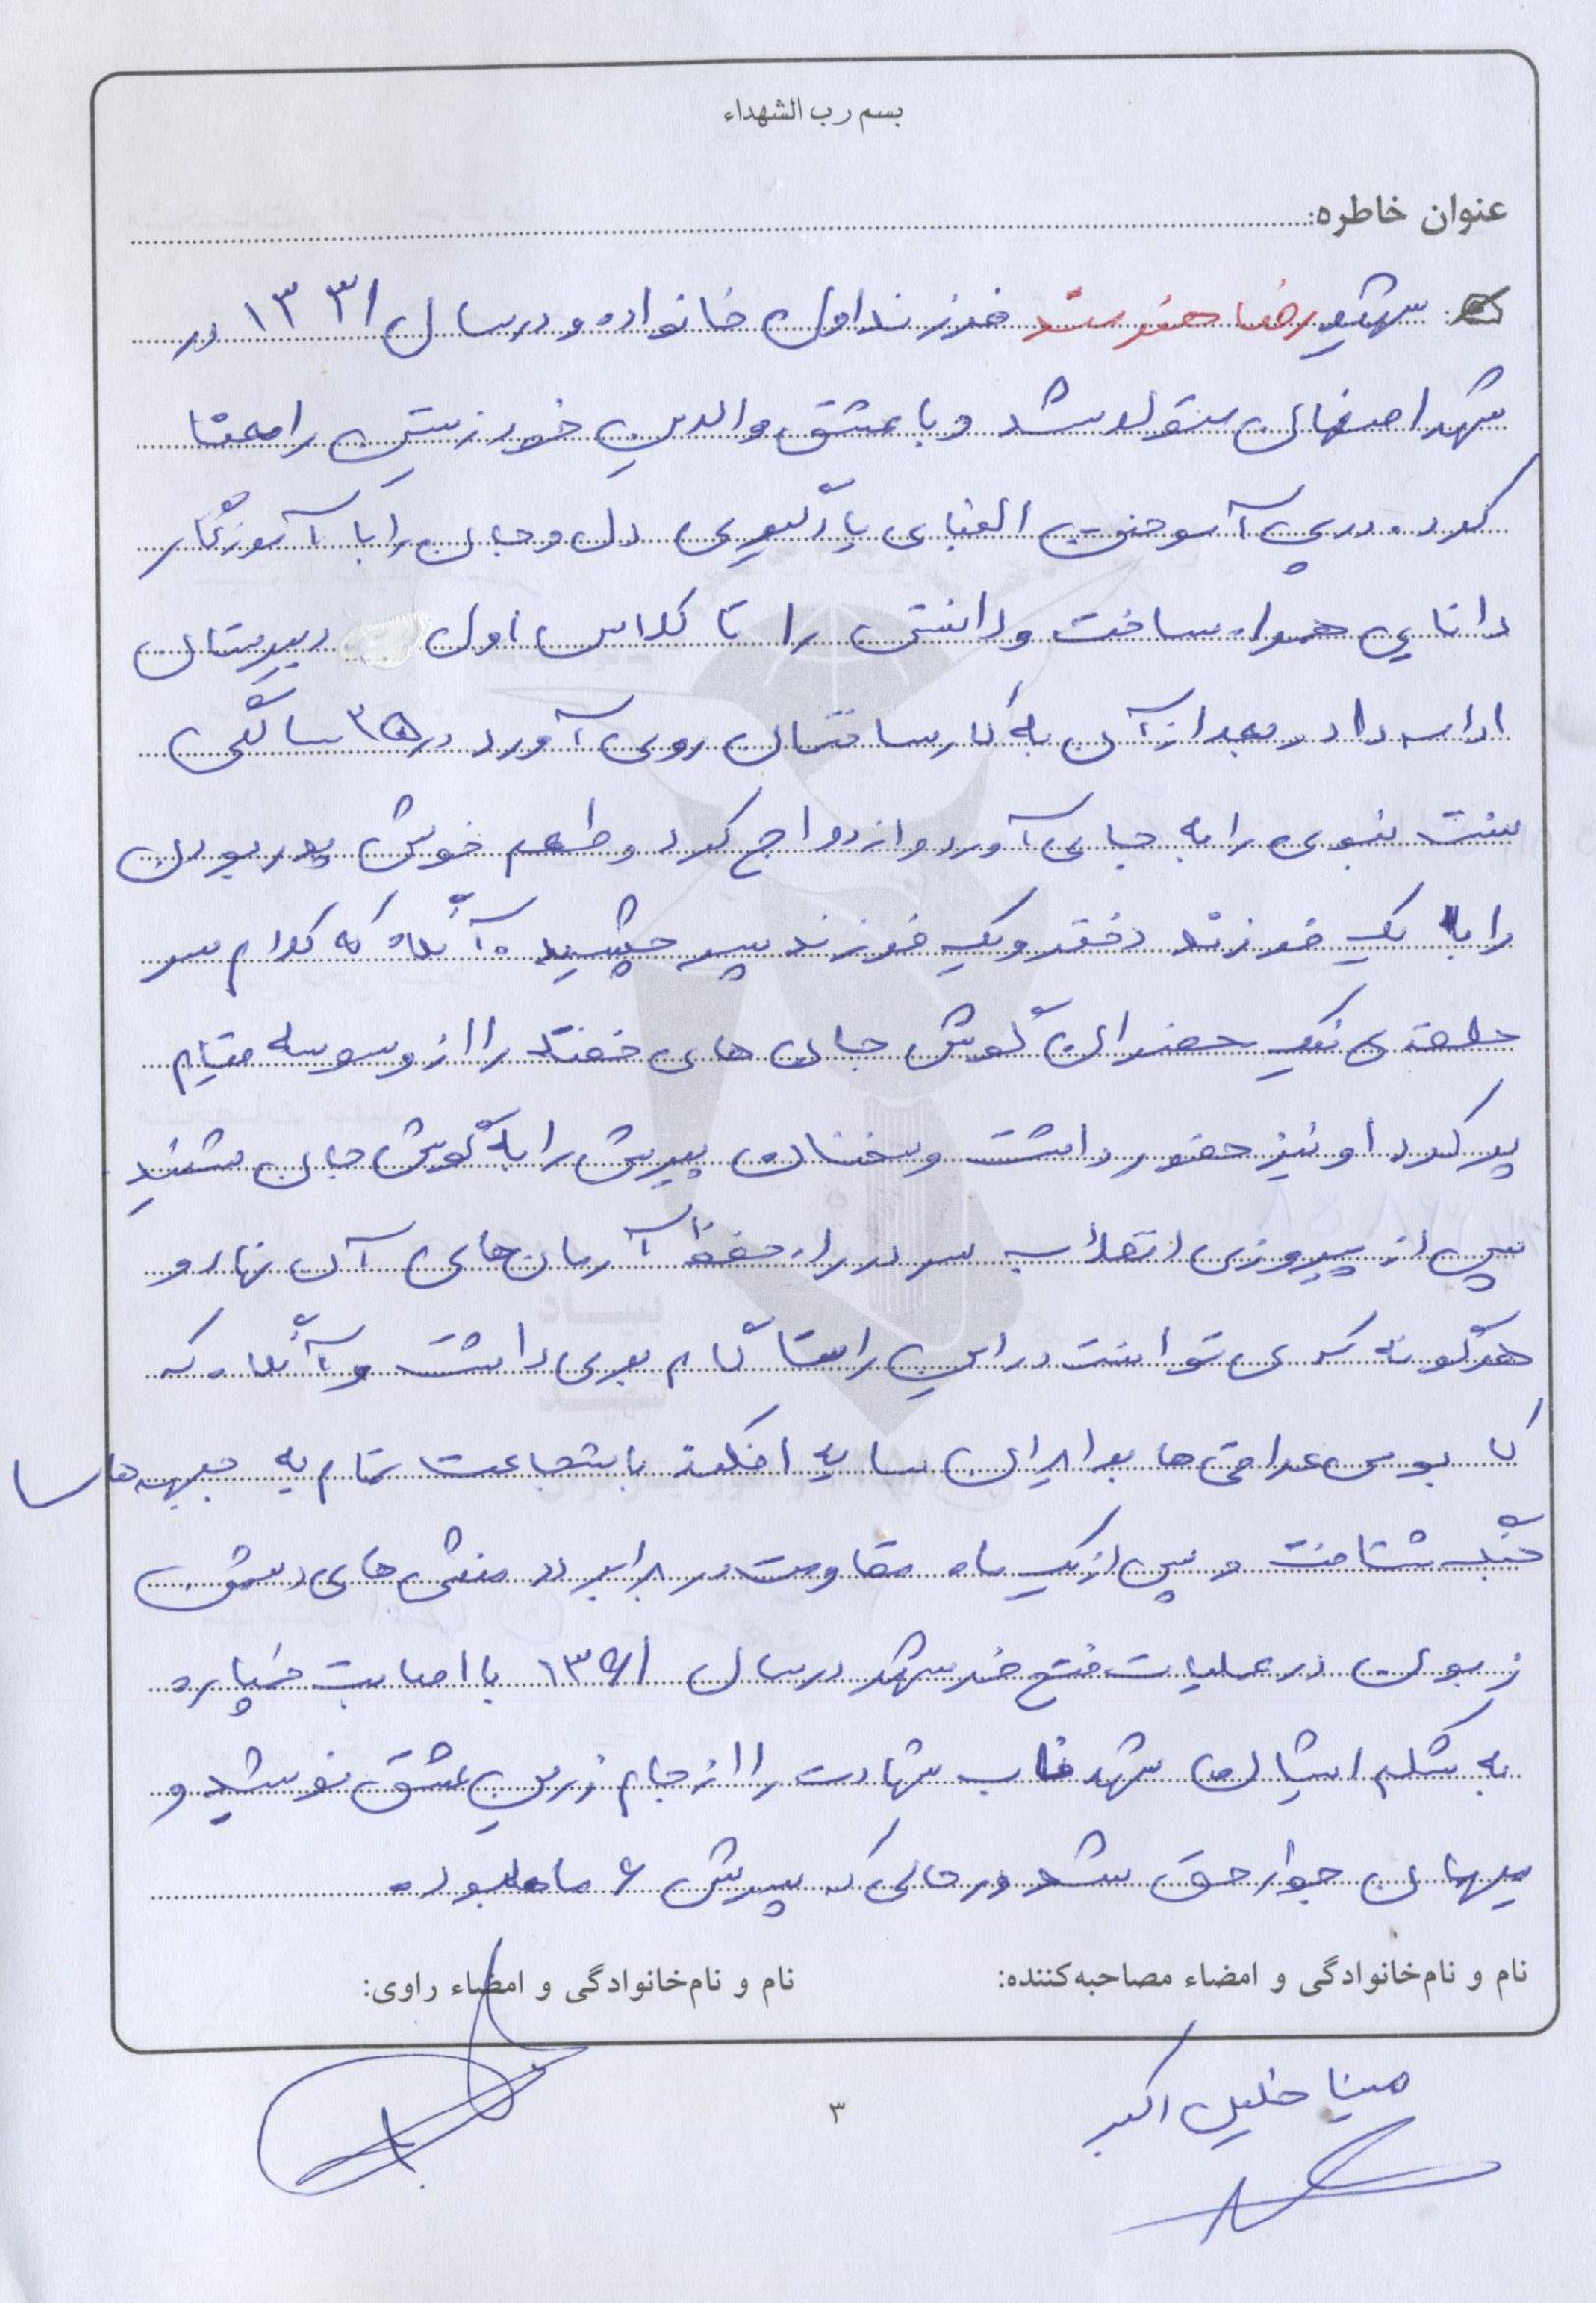 بسم رب الشهداء
عنوان خاطره:
شهید رضا هنرمند فرزند اول خانواده و در سال ۱۳۳۱ در
شهر اصفهان متولد شد و با عشق والدین خود زیستن را معنا
کرد. در پی آموختن الفبای یادگیری دل و جان را با آموزگار
دانایی همراه ساخت و دانش را تا کلاس اول دبیرستان
ادامه داد و بعد از آن به کار ساختمان روی آورد در ۲۵ سالگی
سنت نبوی را به جای آورد و ازدواج کرد و طعم خوش پدر بودن
را با یک فرزند دختر و یک فرزند پسر چشید. آنگاه که کلام سر
حلقه ی نیک گوش جان های خفته را از وسوسه قیام
پر کرد او نیز حضور داشت و سخنان پیرش را به گوش جان شنید
پس از پیروزی انقلاب سر در راه حفظ آرمان های آن نهاد و
هر گونه که می توانست در این راستا گام برمی داشت و آنگاه که
کابوس عراقی ها بر ایران سایه افکند با شجاعت تمام به جبهه ها
جنگ شتافت و پس از یک ماه مقاومت در برابر ددمنشی های دشمن
زبون در عملیات فتح خرمشهر در سال ۱۳۶۱ با اصابت خمپاره
به شکم ایشان شهد ناب شهادت را از جام زرین عشق نوشید و
میهمان جوار حق شد در حالی که پسرش ۶ ماهه بود.
نام و نام‌خانوادگی و امضاء مصاحبه‌کننده:
نام و نام‌خانوادگی و امضاء راوی:
مینا خلیل اکبر
۳